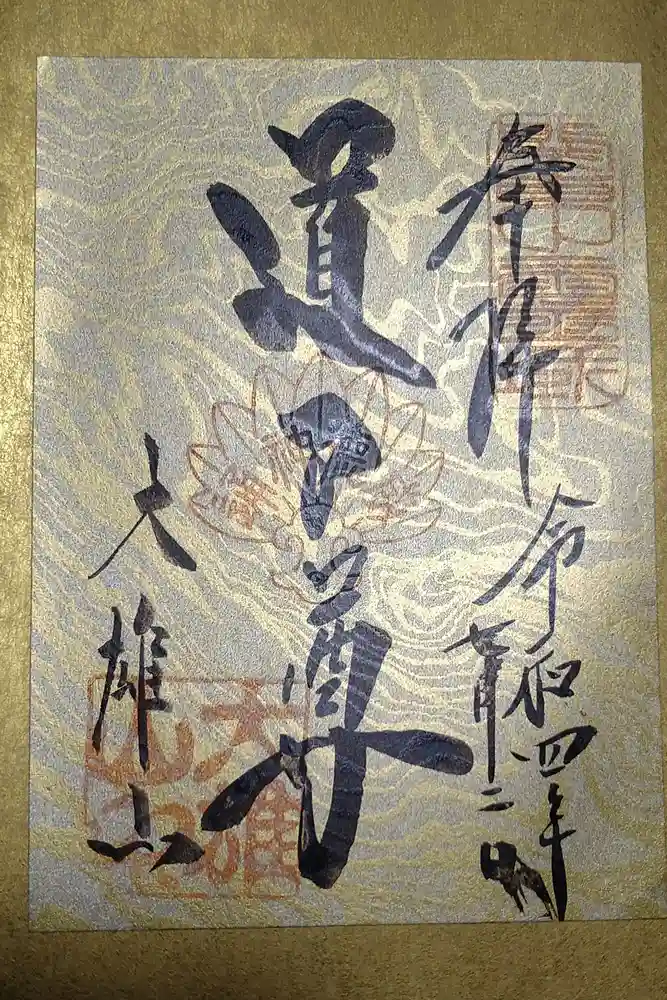 奉拝
令和四年
七月十二日
道了尊
大雄山
大雄
山印